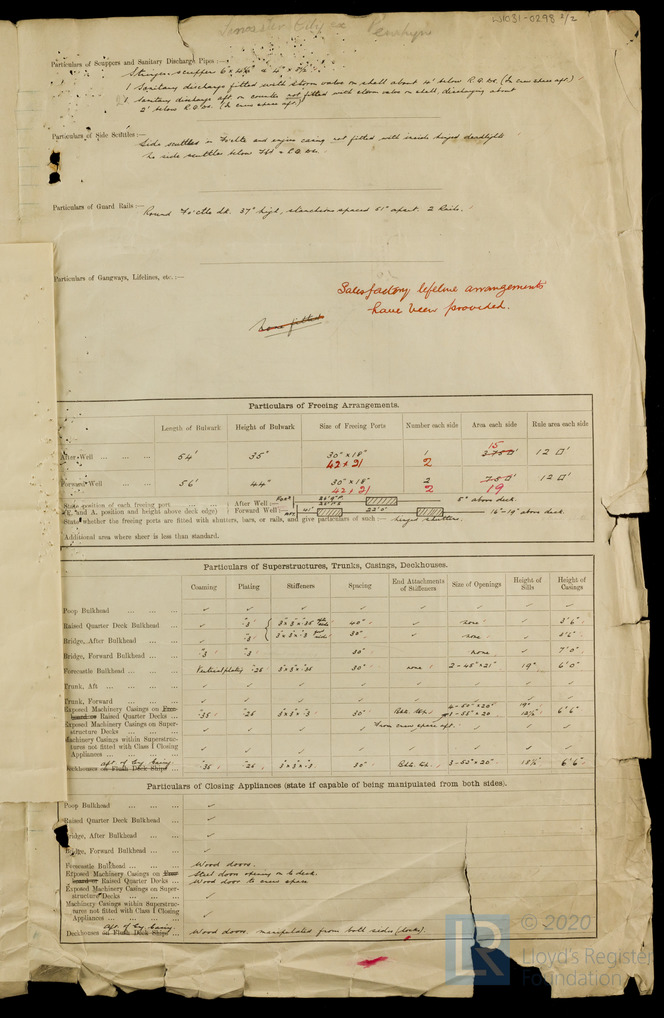 W1031-0298 2/2
Penrhyn
Particulars of Scuppers and Sanitary Discharge Pipes :—
scupper
1 Sanitary discharge fitted with storm valve on shell about 4' below R.Q.Dk. (In crew space aft)
sanitary discharge aft on counter not fitted with storm valve on shell, discharging about
2' below R.Q.Dk. (In crew space aft)
Particulars of Side Scuttles :—
Side scuttles in Fo'c'stle and engine casing not fitted with inside hinged deadlights
No side scuttles below
Particulars of Guard Rails :—
Round Fo'c'tle dk. 37" high, stanchions spaced 51" apart. 2 Rails.
Particulars of Gangways, Lifelines, etc. :—
Satisfactory lifeline arrangements
have been provided.
None fitted
Particulars of Freeing Arrangements.
Length of Bulwark Height of Bulwark Size of Freeing Ports Number each side Area each side Rule area each side
15
After Well ... ... ... 54' 35" 30" x 18" 1 3·75 □' 12 □'
42 x 21 2
Forward Well ... ... 56' 44" 30" x 18" 2 7·5 □' 12 □'
42 x 21 2 19
State position of each freeing port ... ... After Well :— 5" above deck
(F. and A. position and height above deck edge) Forward Well :— 41' 22'0" 16"-19" above deck.
State whether the freeing ports are fitted with shutters, bars, or rails, and give particulars of such :— hinged shutters.
Additional area where sheer is less than standard.
Particulars of Superstructures, Trunks, Casings, Deckhouses.
Coaming Plating Stiffeners Spacing End Attachments of Stiffeners Size of Openings Height of Sills Height of Casings
Poop Bulkhead ... ... ... ✓ ✓ ✓ ✓ ✓ ✓ ✓ ✓
Raised Quarter Deck Bulkhead ... ✓ ·3 3 x 3 x ·35 40" ✓ none ✓ 3'6"
Bridge, After Bulkhead ... ... ✓ ·3 3 x 3 x ·3 30" ✓ none ✓
Bridge, Forward Bulkhead ... ... ·3 ·3 30" none ✓ 7'0"
Forecastle Bulkhead ... ... ... Vertical plating ·26 3 x 3 x ·26 30" none 2 - 45" x 21" 19" 6'0"
Trunk, Aft ... ... ... ✓ ✓ ✓ ✓ ✓ ✓ ✓ ✓
Trunk, Forward ... ... ... ✓ ✓ ✓ ✓ ✓ ✓ ✓ ✓
Exposed Machinery Casings on Free-
board or Raised Quarter Decks ... ·35 ·26 3 x 3 x ·3 30" 6'6"
Exposed Machinery Casings on Super-
structure Decks ... ... ... ✓ ✓ ✓ ✓ From crew space aft. ✓ ✓ ✓
Machinery Casings within Superstruc-
tures not fitted with Class I Closing
Appliances ... ... ... ✓ ✓ ✓ ✓ ✓ ✓ ✓ ✓
aft of Eng. Casing
Deckhouses on Flush Deck Ships ... ·35 ·26 3 x 3 x ·3 30" 3 - 52" x 20" 6'6"
Particulars of Closing Appliances (state if capable of being manipulated from both sides).
Poop Bulkhead ... ... ... ✓
Raised Quarter Deck Bulkhead ... ✓
Bridge, After Bulkhead ... ... ✓
Bridge, Forward Bulkhead ... ... ✓
Forecastle Bulkhead ... ... ... Wood doors.
Exposed Machinery Casings on Free-
board or Raised Quarter Decks ... Steel door opening on to deck.
Wood door to crew space
Exposed Machinery Casings on Super-
structure Decks ... ... ... ✓
Machinery Casings within Superstruc-
tures not fitted with Class I Closing
Appliances ... ... ... ✓
aft of Eng. Casing
Deckhouses on Flush Deck Ships ... Wood doors. manipulated from both sides (locks).
© 2020
LR Lloyd's Register
Foundation